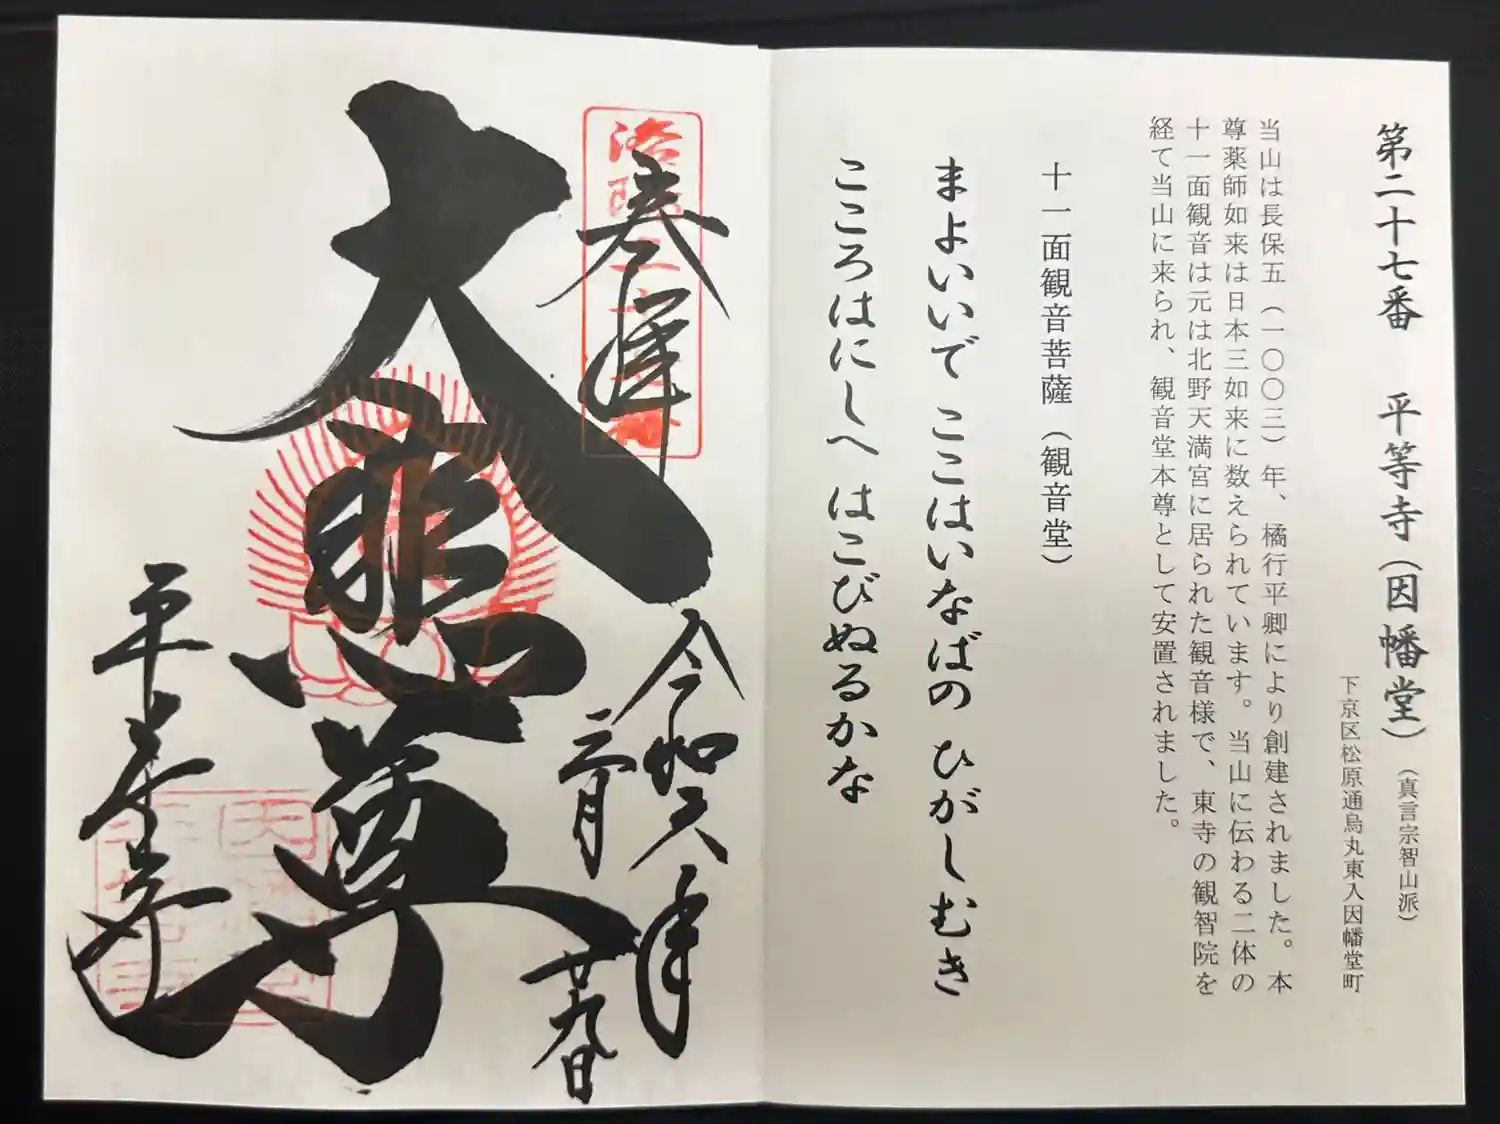 第二十七番 平等寺(因幡堂)(真言宗智山派)
下京区松原通烏丸東入因幡堂町
当山は長保五(一〇〇三)年、橘行平卿により創建されました。本
尊薬師如来は日本三如来に数えられています。当山に伝わる二体の
十一面観音は元は北野天満宮に居られた観音様で、東寺の観智院を
経て当山に来られ、観音堂本尊として安置されました。
十一面観音菩薩(観音堂)
まよいいで ここはいなばの ひがしむき
こころはにしへ はこびぬるかな
奉拝
洛陽
令和六年
月
廿九日
大悲尊
平等寺